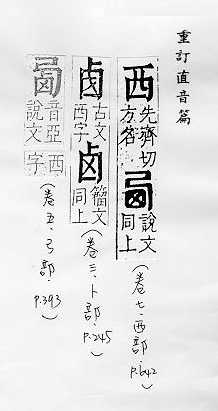 重訂直音篇
西 先齊切 方名 𢐅 說文同上
(卷七·西部·P.642)
卤 古文西字 卥 籀文同上
(卷三·卜部·P.245)
音亞 說文西字
(卷五·弓部·P.393)